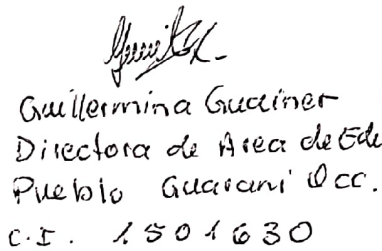 Guillermina Guainer
Directora de Area de Edu
Pueblo Guarani Occ.
C.I. 1501630